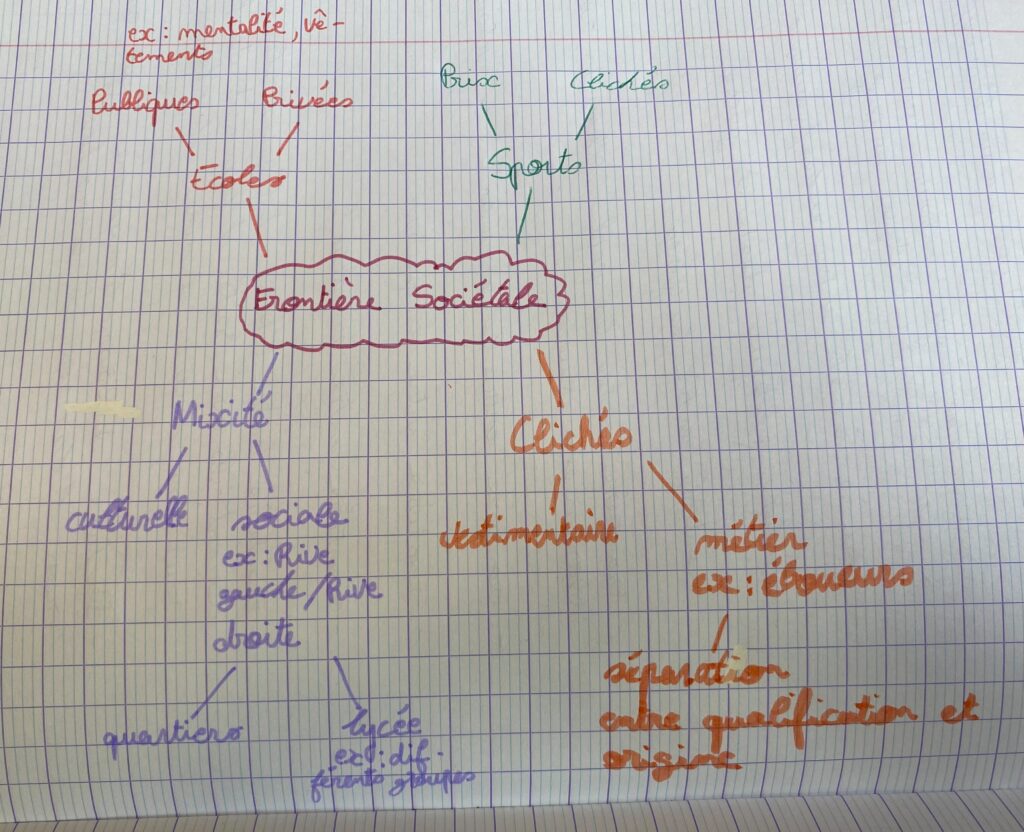 ex : mentalité, vê-
tements
Publiques Privées
Prix Clichés
Écoles
Sports
Frontière Sociétale
Mixcité
Clichés
culturelle sociale
ex : Rive
gauche/Rive
droite
vestimentaire
métier
ex : éboueurs
quartiers
lycée
ex : dif-
férents groupes
séparation
entre qualification et
origine